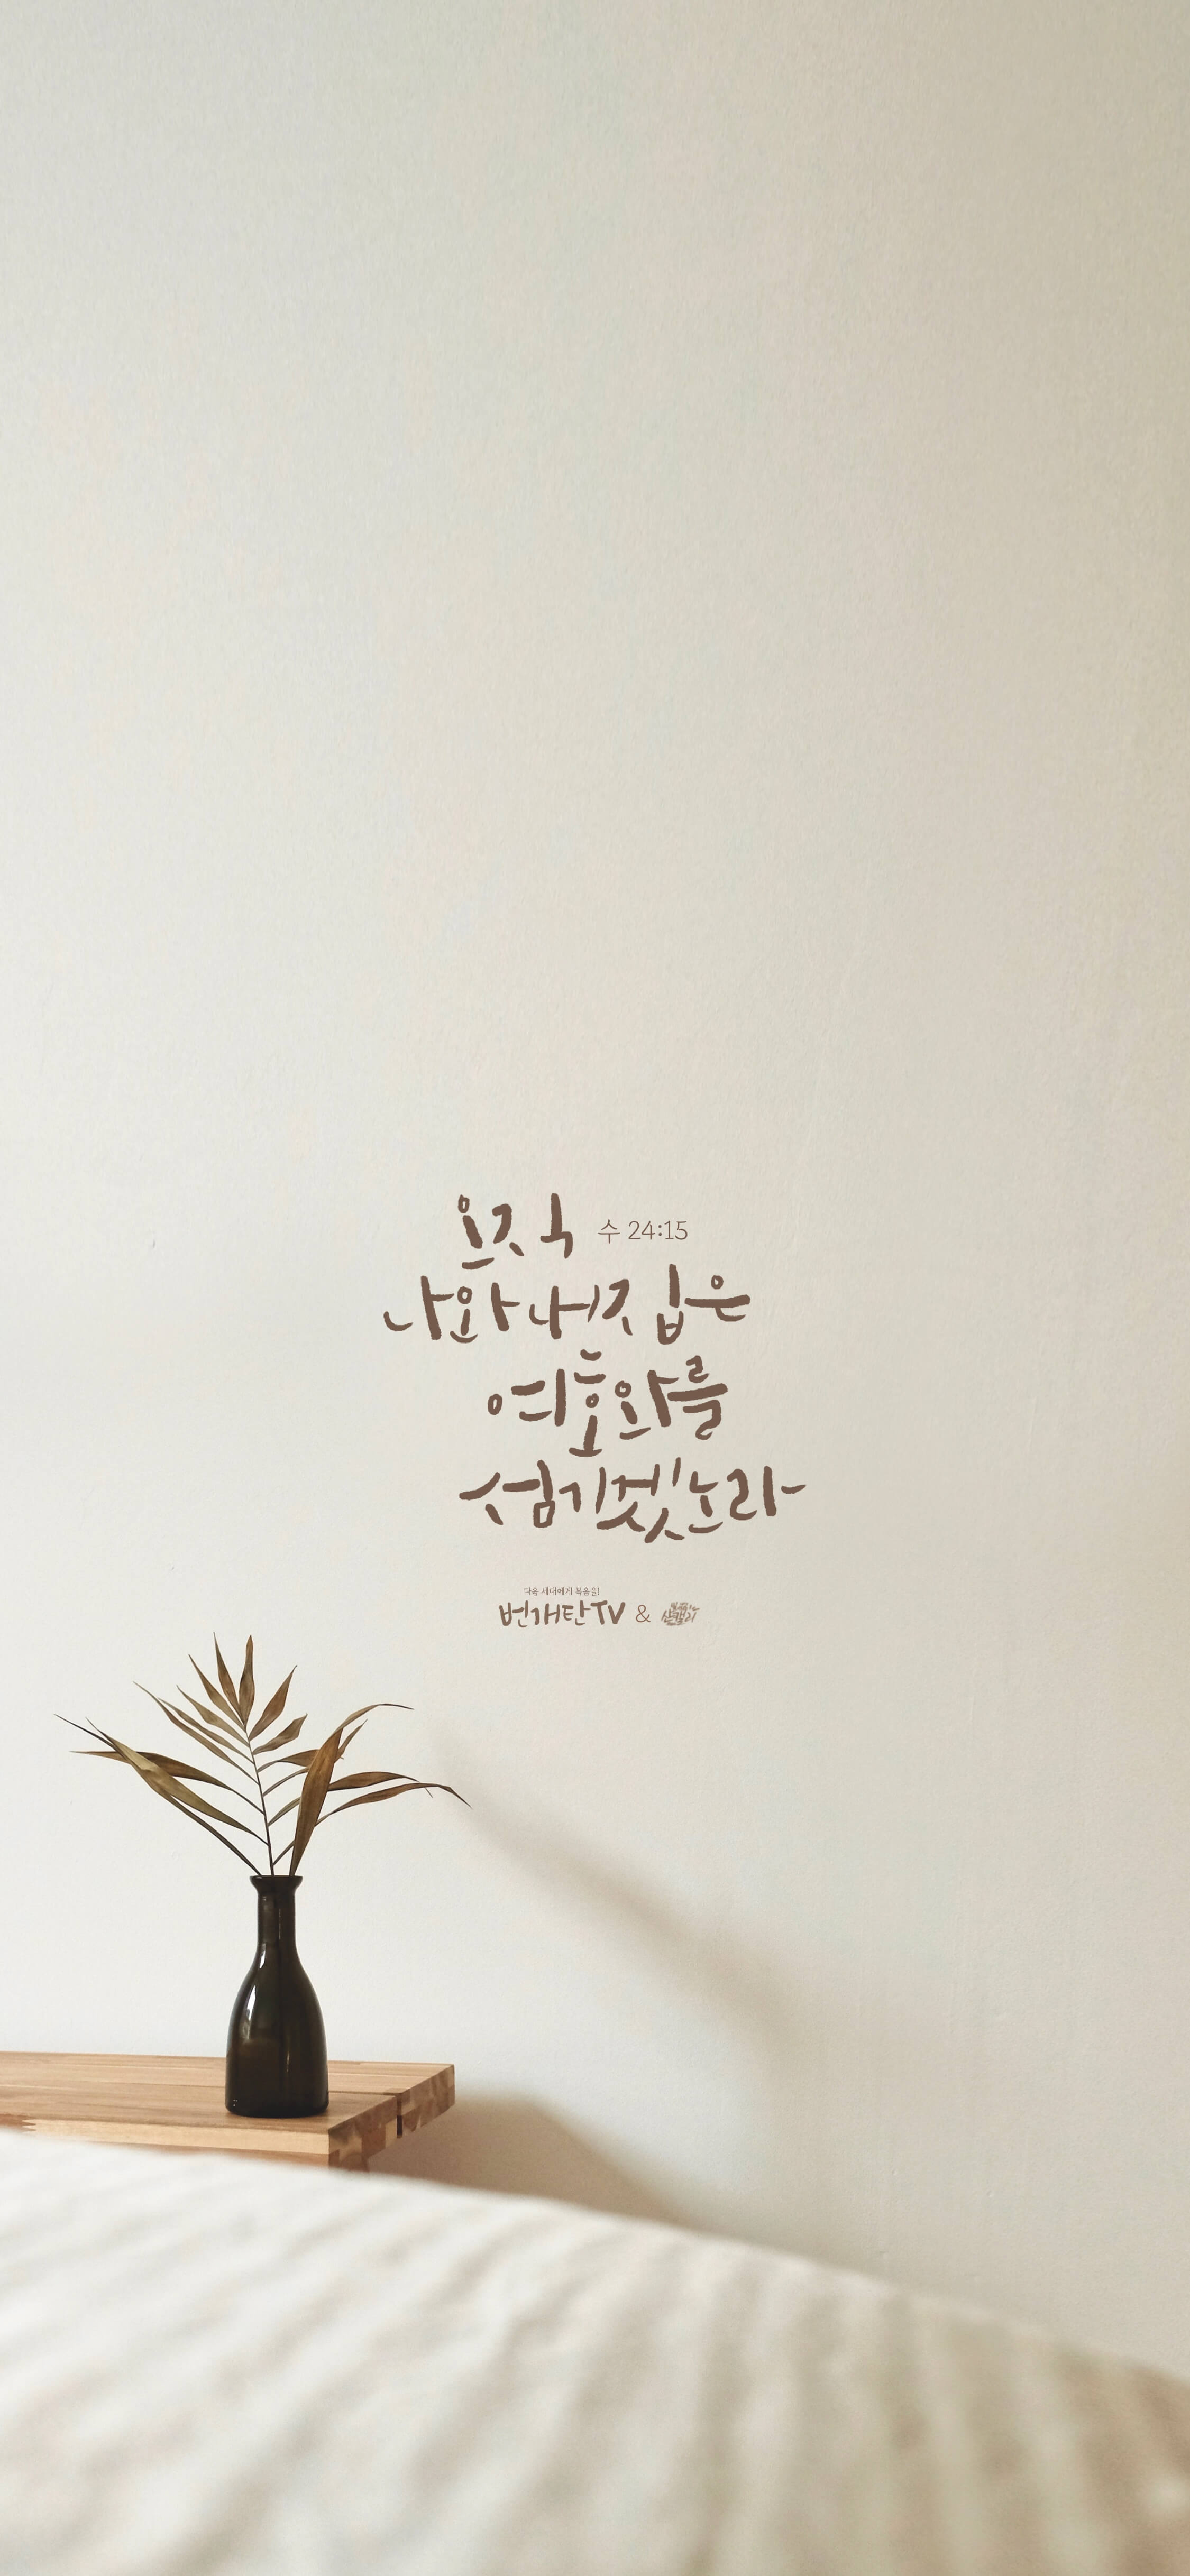 오직 수 24:15
나와 내 집은
여호와를
섬기겠노라
다음 세대에게 복음을!
번개탄TV &